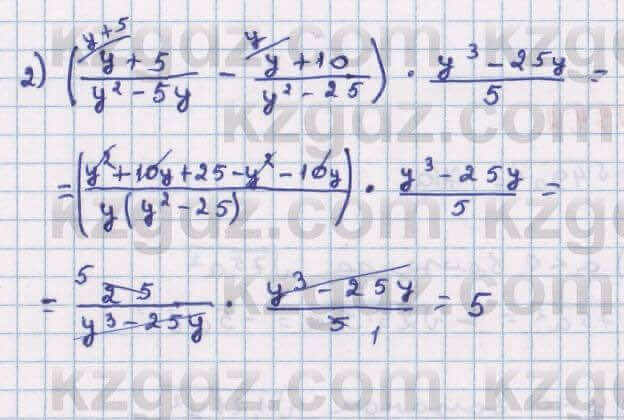 2) ( \frac{\overset{y+5}{y+5}}{y^2-5y} - \frac{\overset{y}{y+10}}{y^2-25} ) \cdot \frac{y^3-25y}{5} =
= ( \frac{y^2+10y+25-y^2-10y}{y(y^2-25)} ) \cdot \frac{y^3-25y}{5} =
= \frac{\overset{5}{25}}{y^3-25y} \cdot \frac{y^3-25y}{5_1} = 5
kzgdz.com
kzgdz.com
kzgdz.com
kzgdz.com